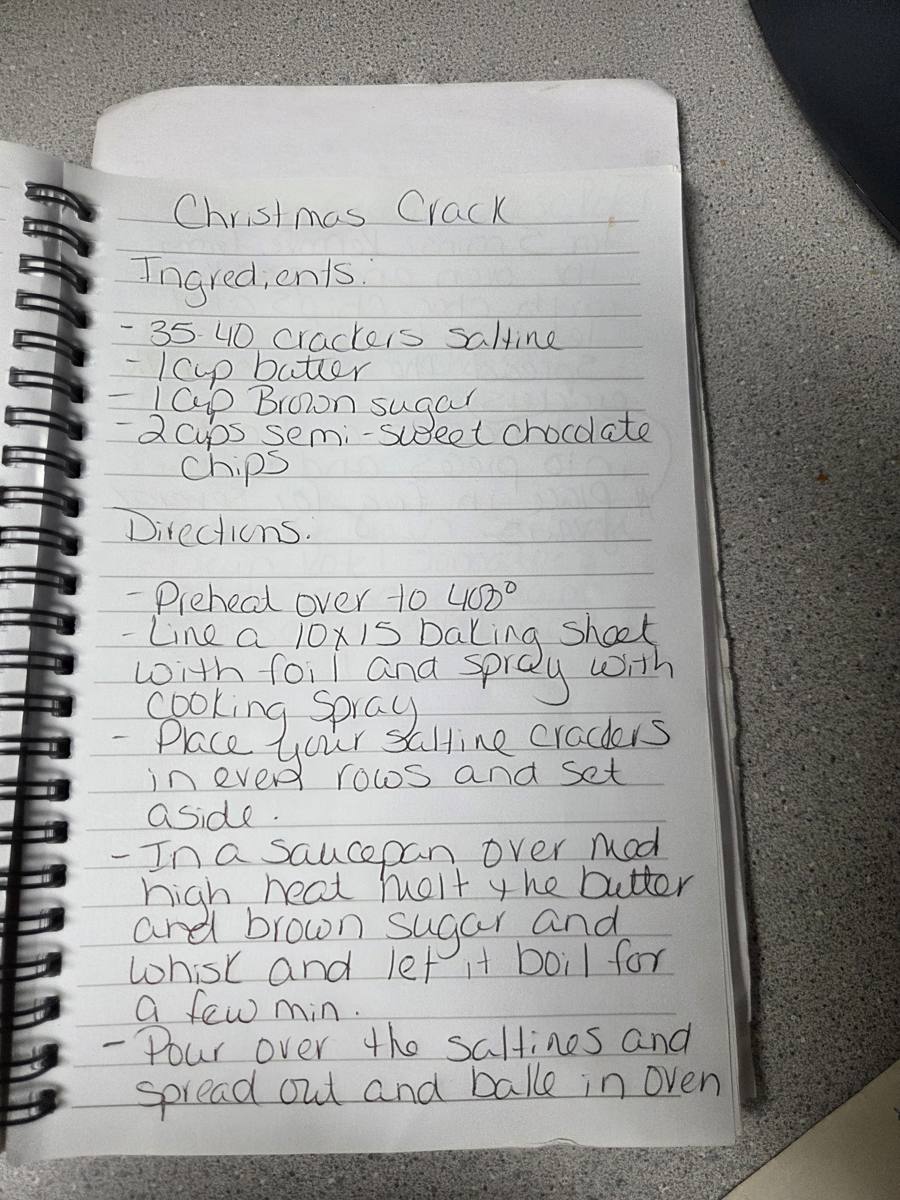 Christmas Crack
Ingredients:
- 35-40 crackers saltine
- 1 cup butter
- 1 cup Brown sugar
- 2 cups semi-sweet chocolate
chips
Directions:
- Preheat over to 400°
- Line a 10x15 baking sheet
with foil and spray with
cooking spray
- Place your saltine crackers
in even rows and set
aside.
- In a saucepan over med
high heat melt the butter
and brown sugar and
whisk and let it boil for
a few min.
- Pour over the saltines and
spread out and bake in oven